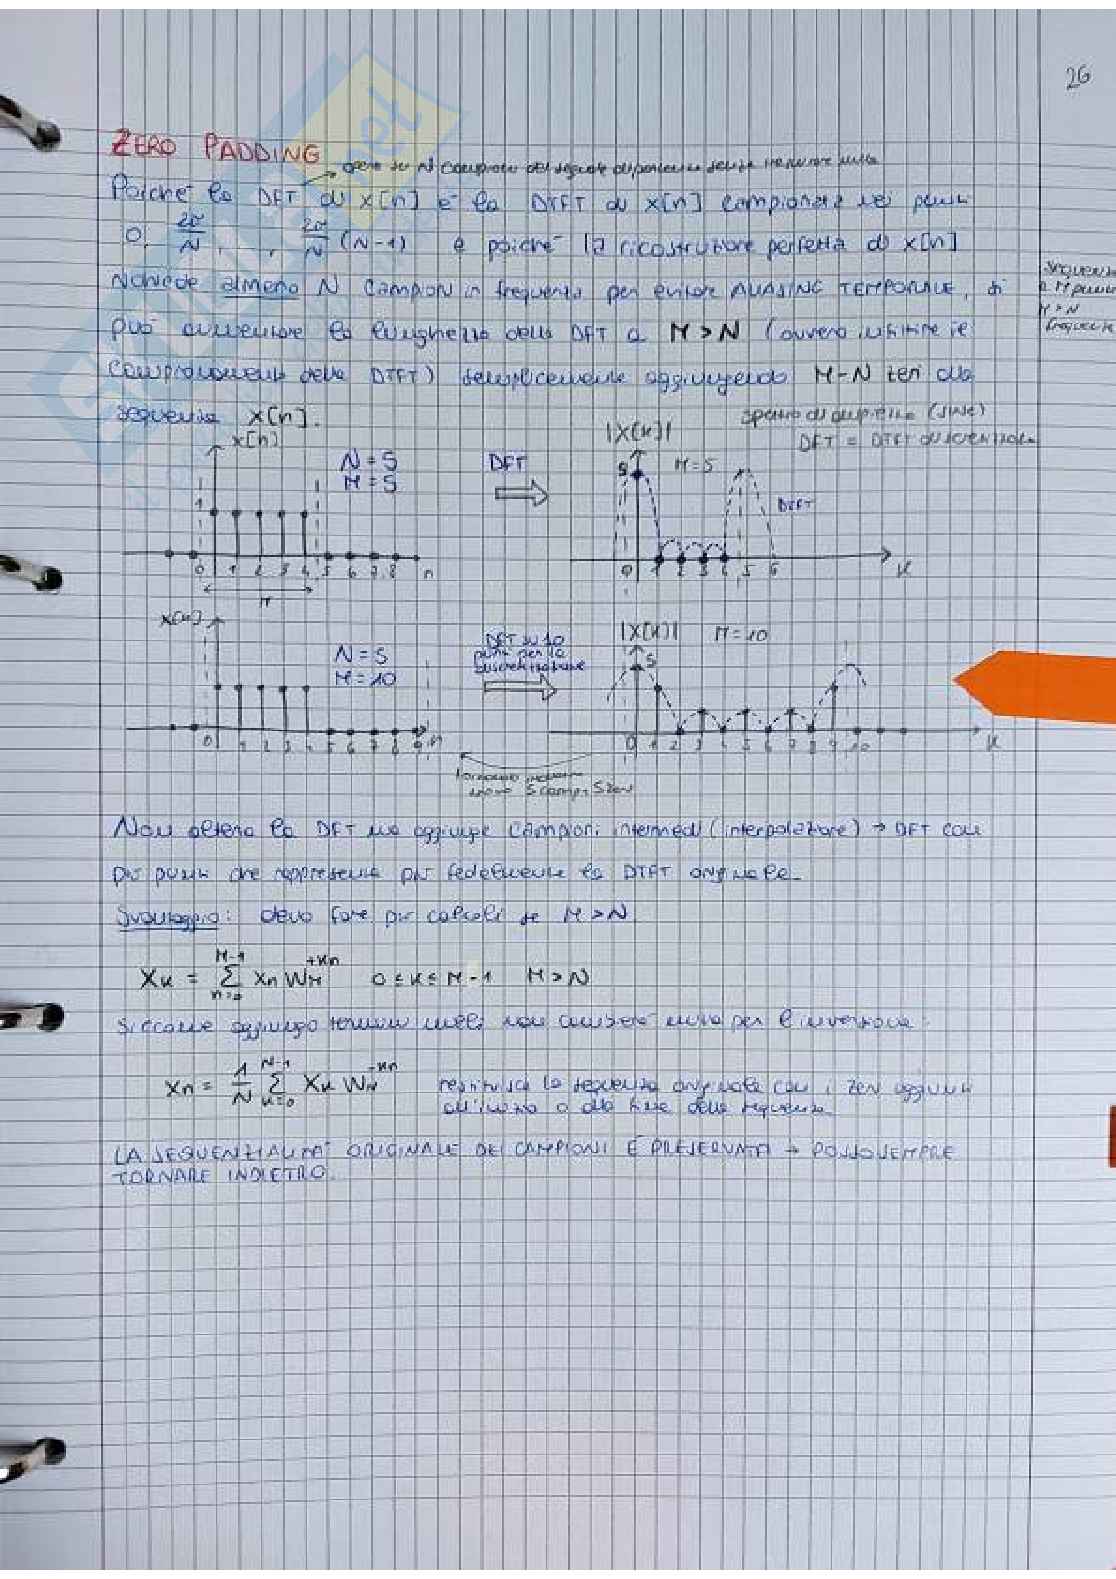 26
ZERO PADDING
Poiché la DFT di x[n] è la DTFT di x[n] campionata nei punti
0, 2π/N, , 2π/N (N-1) e poiché la ricostruzione perfetta di x[n]
richiede almeno N campioni in frequenza per evitare ALIASING TEMPORALE, si
può aumentare la lunghezza della DFT a M > N (ovvero infittire il
campionamento della DTFT) semplicemente aggiungendo M-N zeri alla
sequenza x[n].
M > N
x[n]
N = 5
M = 5
DFT
|X[k]|
M = 5
spettro di ampiezza (sinc)
DFT = DTFT
DTFT
1
5
0 1 2 3 4 5 6 7 8 n
M
0 1 2 3 4 5 6 k
x[n]
N = 5
M = 10
DFT su 10
punti per la
|X[k]| M = 10
5
0 1 2 3 4 5 6 7 8 9 n
0 1 2 3 4 5 6 7 8 9 10 k
5 camp, 5 zeri
Non altera la DFT ma aggiunge campioni intermedi (interpolazione) → DFT con
più punti che rappresenta più fedelmente la DTFT originale.
Svantaggio: devo fare più calcoli se M > N
Xk = Σ_{n=0}^{M-1} xn W_M^{+kn} 0 ≤ k ≤ M-1 M > N
Siccome aggiungo termini nulli non cambierà nulla per l'inversione:
xn = 1/N Σ_{k=0}^{N-1} Xk W_N^{-kn} restituisce la sequenza originale con i zeri aggiunti
all'inizio o alla fine della sequenza
LA SEQUENZIALITA' ORIGINALE DEI CAMPIONI È PRESERVATA → POSSO SEMPRE
TORNARE INDIETRO.